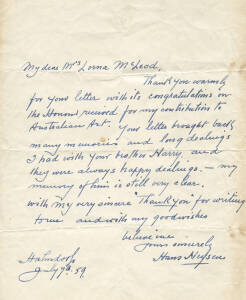 My dear Mrs Lorna McLeod,
Thank you warmly
for your letter with its congratulations on
the Honor received for my contribution to
Australian Art. Your letter brought back
many memories and long dealings
I had with your brother Harry and
they were always happy dealings. — my
memory of him is still very clear.
with my very sincere Thank you for writing
to me and with my good wishes
believe me
yours sincerely
Hahndorf Hans Heysen
July 9th 59